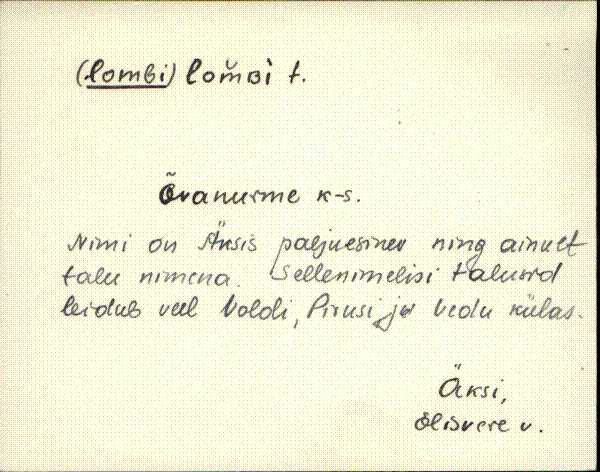 (Lombi) lom̆ʙì t.
Õvanurme k-s.
Nimi on Äksis paljuesinev ning ainult
talu nimena. Sellenimelisi talusid
leidub veel Voldi, Pirusi ja Vedu külas.
Äksi,
Elisvere v.